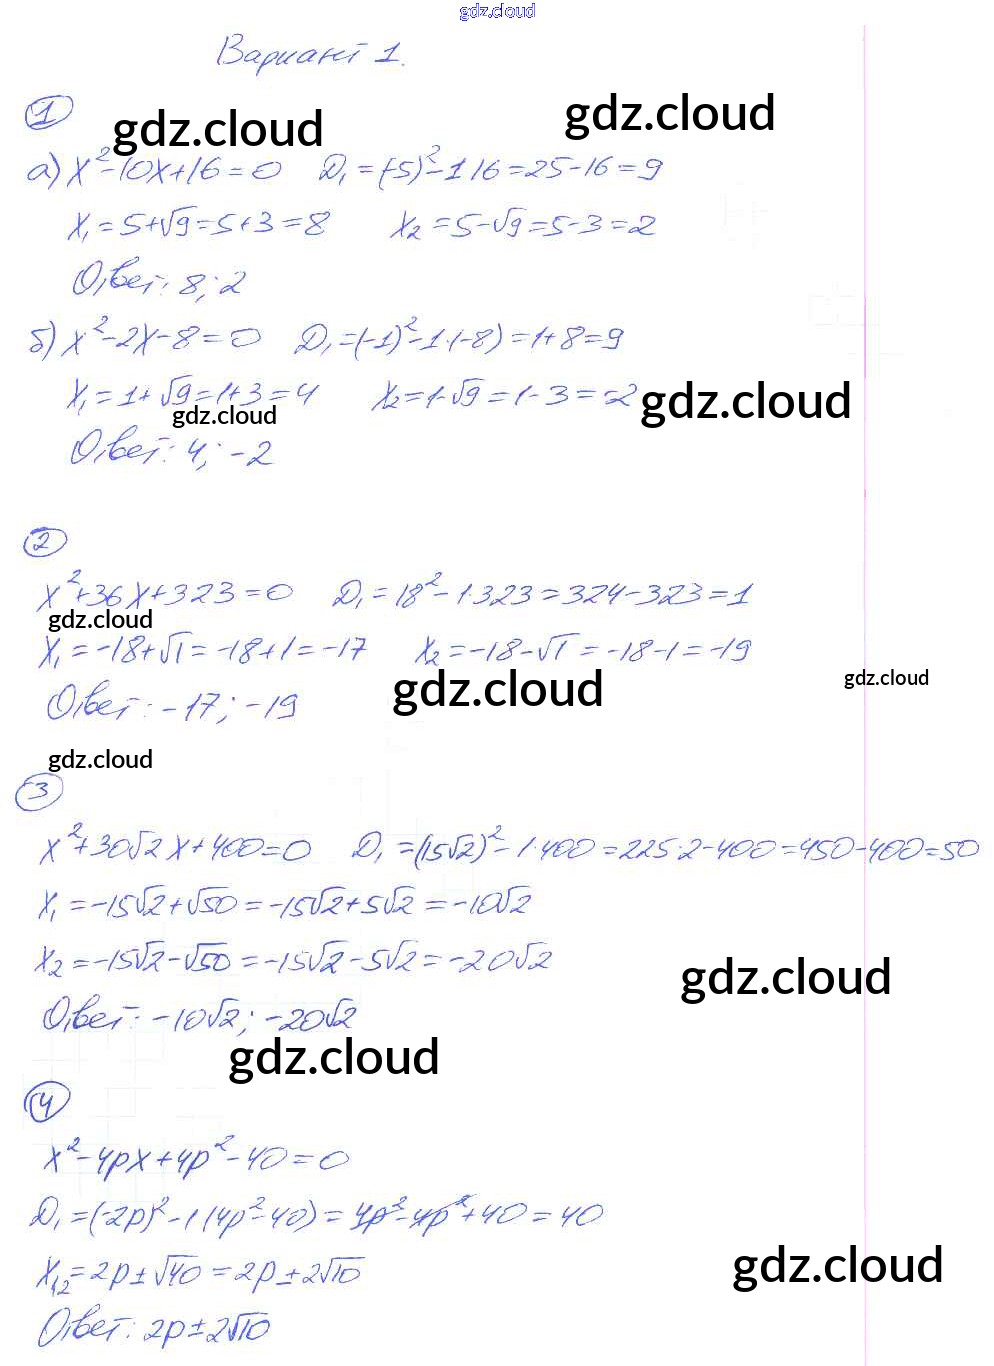 gdz.cloud
Вариант 1.
1
gdz.cloud
gdz.cloud
а) x²-10x+16=0 D₁=(-5)²-1·16=25-16=9
x₁=5+√9=5+3=8 x₂=5-√9=5-3=2
Ответ: 8; 2
б) x²-2x-8=0 D₁=(-1)²-1·(-8)=1+8=9
x₁=1+√9=1+3=4 x₂=1-√9=1-3=-2
gdz.cloud
gdz.cloud
Ответ: 4; -2
2
x²+36x+323=0 D₁=18²-1·323=324-323=1
gdz.cloud
x₁=-18+√1=-18+1=-17 x₂=-18-√1=-18-1=-19
gdz.cloud
gdz.cloud
Ответ: -17; -19
gdz.cloud
3
x²+30√2x+400=0 D₁=(15√2)²-1·400=225·2-400=450-400=50
x₁=-15√2+√50=-15√2+5√2=-10√2
x₂=-15√2-√50=-15√2-5√2=-20√2
gdz.cloud
Ответ: -10√2; -20√2
gdz.cloud
4
x²-4px+4p²-40=0
D₁=(-2p)²-1(4p²-40)=4p²-4p²+40=40
x₁,₂=2p±√40=2p±2√10
gdz.cloud
Ответ: 2p±2√10